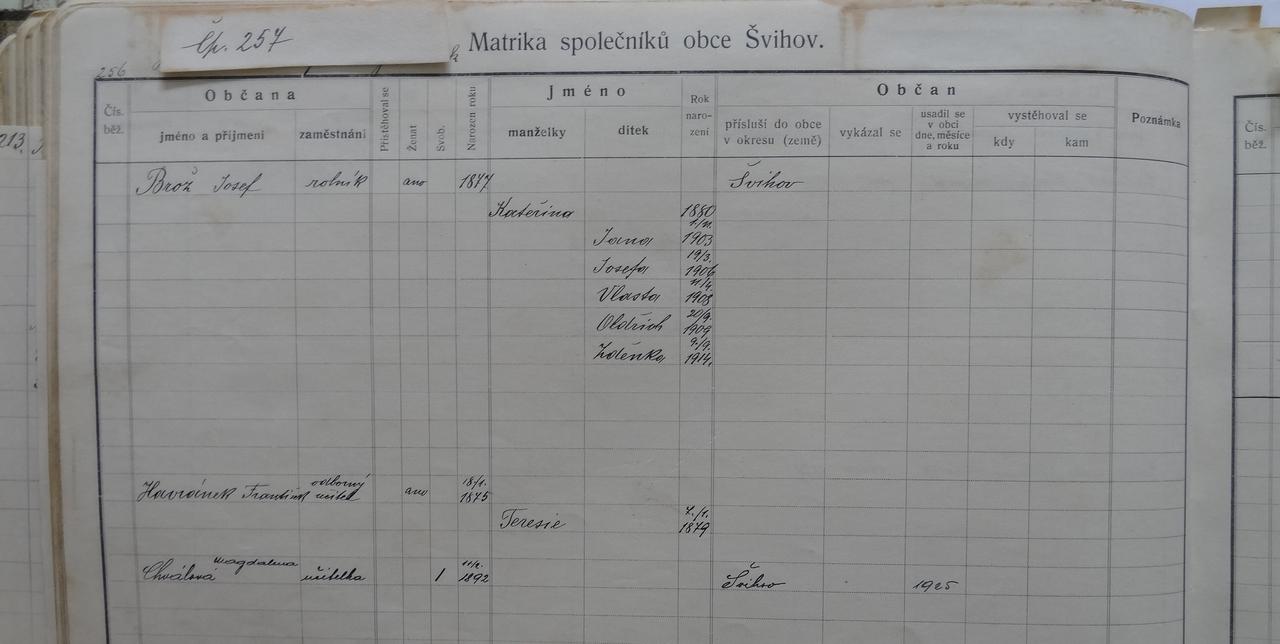 Čp. 257
Matrika společníků obce Švihov.
256
Čís. běž.
Občana
jméno a příjmení
zaměstnání
Přistěhoval se
Ženat
Svob.
Narozen roku
Jméno
manželky
dítek
Rok naro- zení
Občan
přísluší do obce v okresu (země)
vykázal se
usadil se v obci dne, měsíce a roku
vystěhoval se
kdy
kam
Poznámka
Čís. běž.
213.
Brož Josef rolník ano 1877 Švihov
Kateřina 1880
Jana 1903
19/3.
Josefa 1906
11/4.
Vlasta 1908
20/9.
Oldřich 1909
9./9.
Zdenka 1914.
Havránek František odborný učitel ano 18/1. 1875
Teresie 7./1. 1879
Chválová Magdalena učitelka / 1892 Švihov 1925